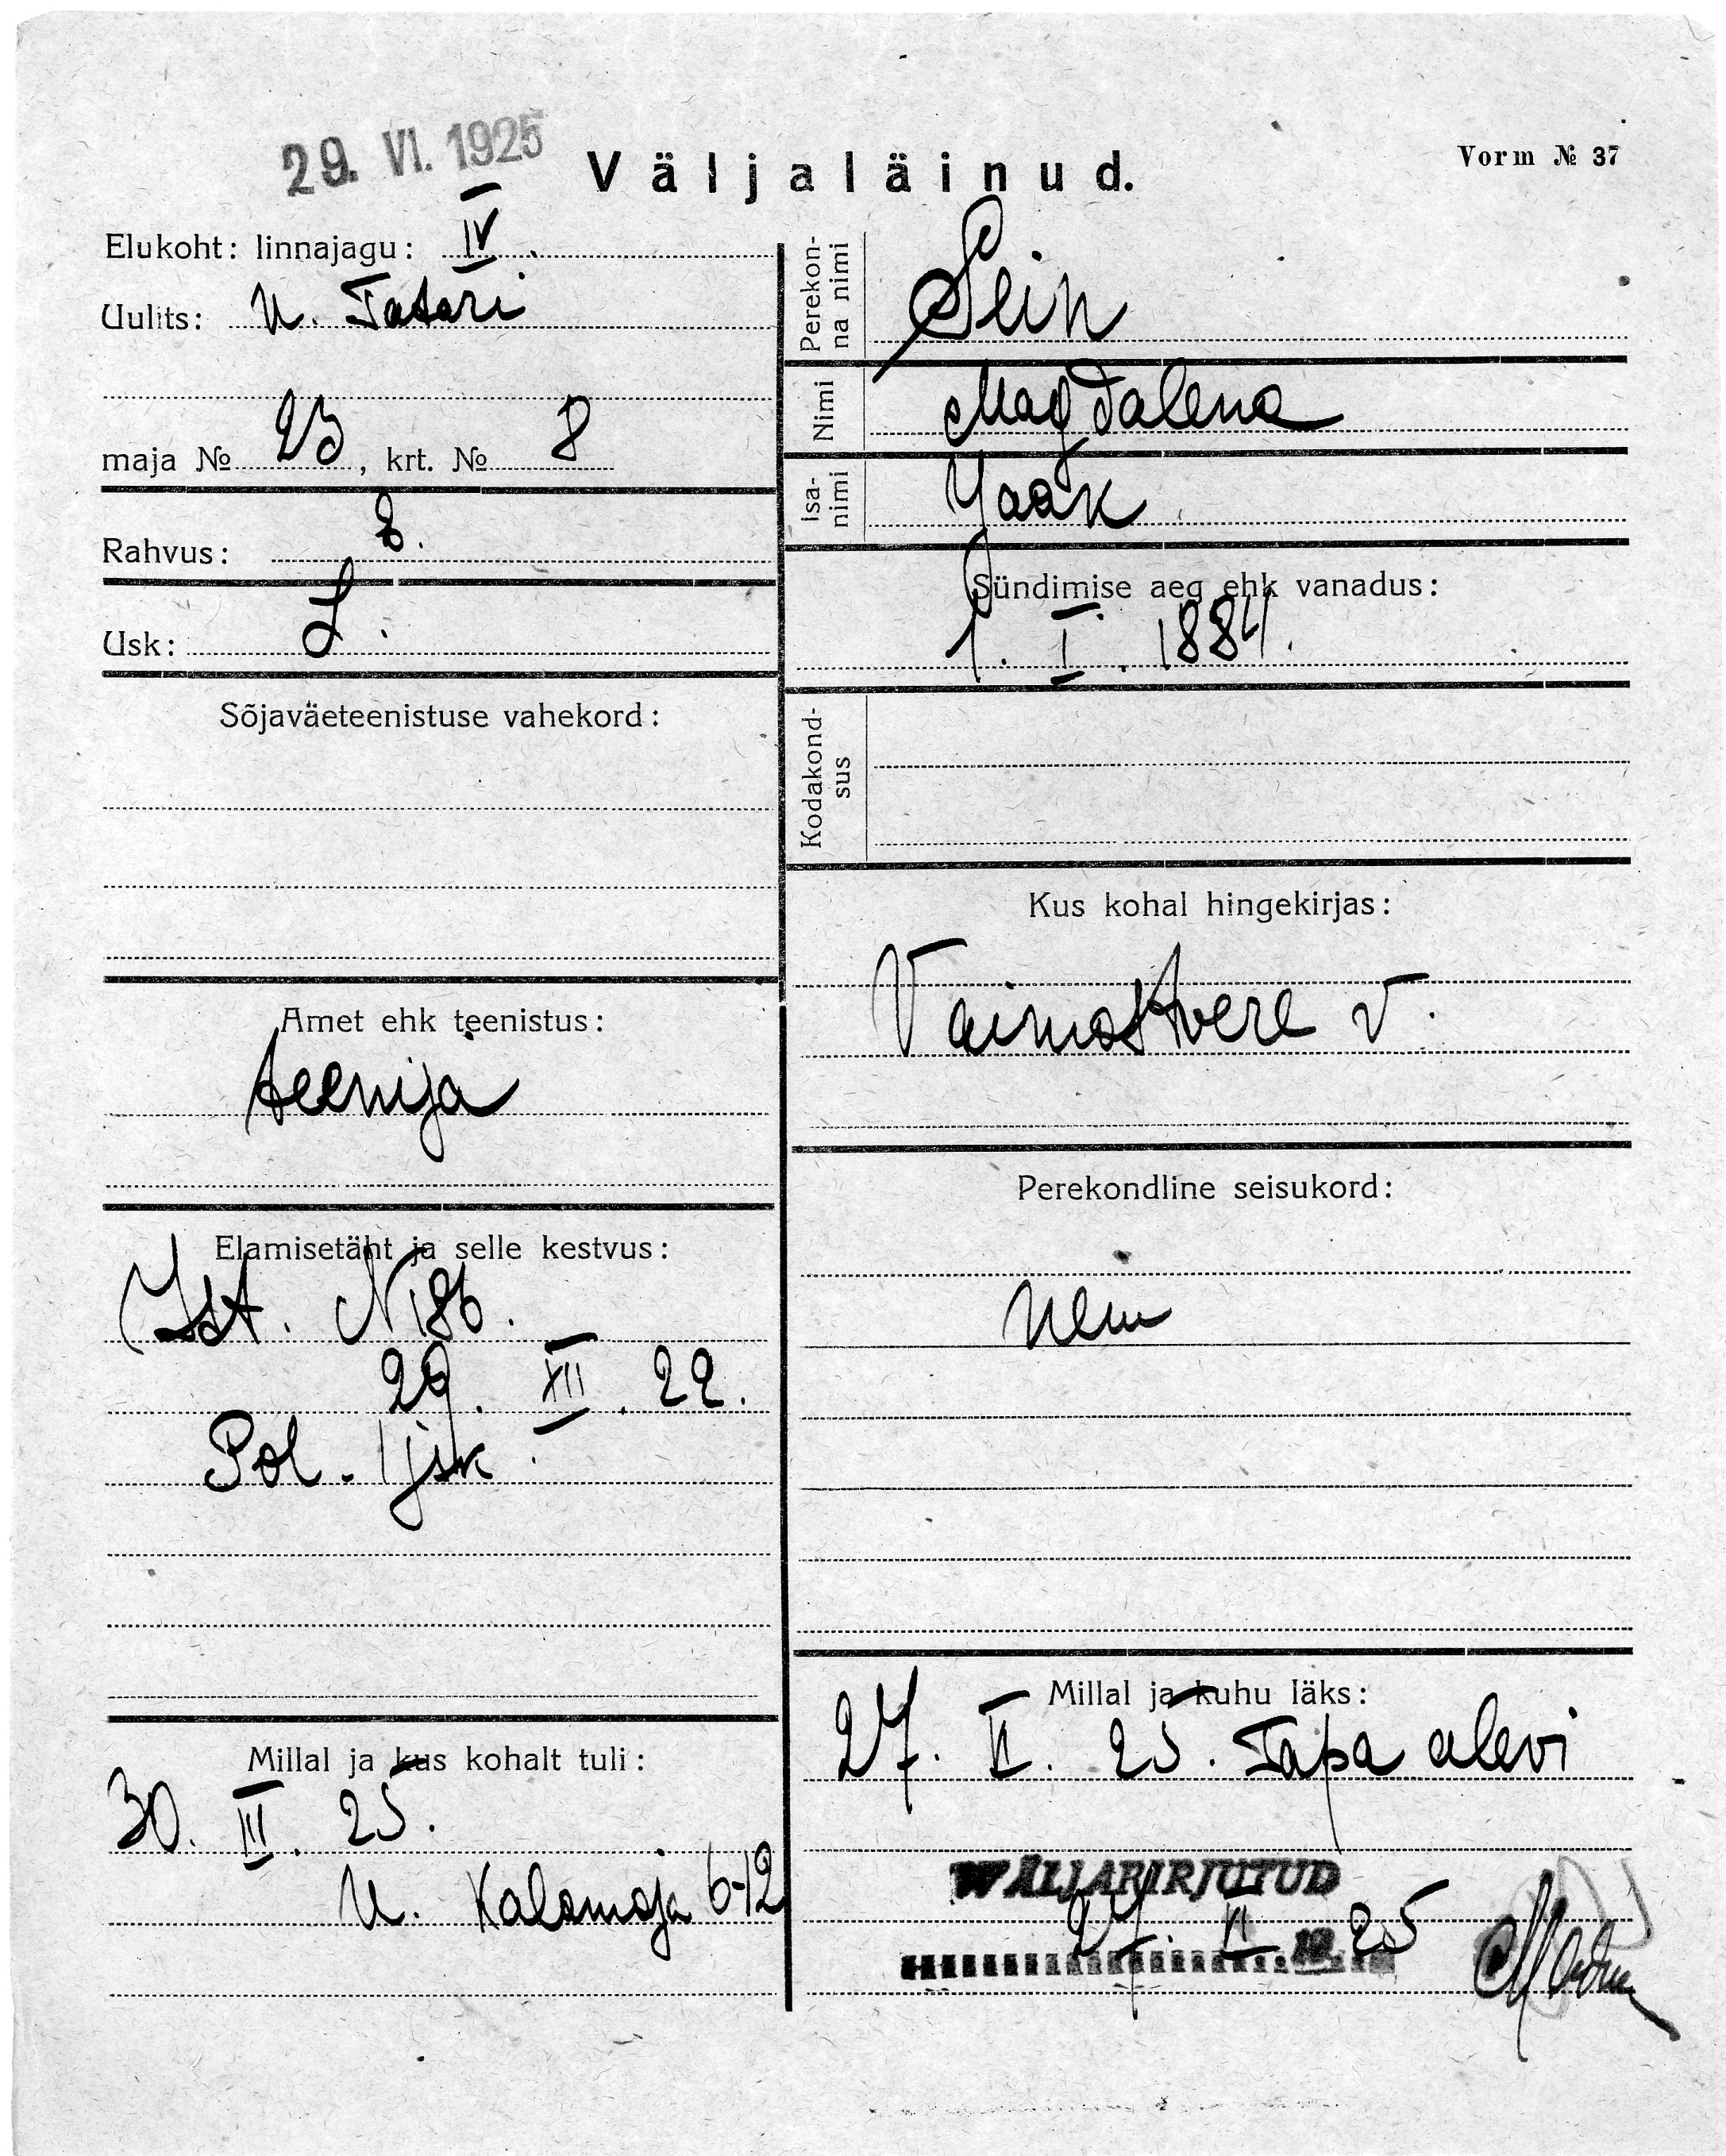 29. VI. 1925
Väljaläinud.
Vorm № 37
Elukoht: linnajagu: IV.
Uulits: U. Tatari
maja № 23, krt. № 8
Rahvus: E.
Usk: L.
Sõjaväeteenistuse vahekord:
Amet ehk teenistus:
teenija
Elamisetäht ja selle kestvus:
Ist. N 186.
29. XII. 22.
Pol. I jsk.
Millal ja kus kohalt tuli:
30. III. 25.
U. Kalamaja 6-12
Perekonna nimi
Sein
Nimi
Magdalena
Isanimi
Jaak
Sündimise aeg ehk vanadus:
1. I. 1884.
Kodakondsus
Kus kohal hingekirjas:
Vaimastvere v.
Perekondline seisukord:
Millal ja kuhu läks:
27. VI. 25. Tapa alevi
WÄLJAKIRJUTUD
27. VI 19 25